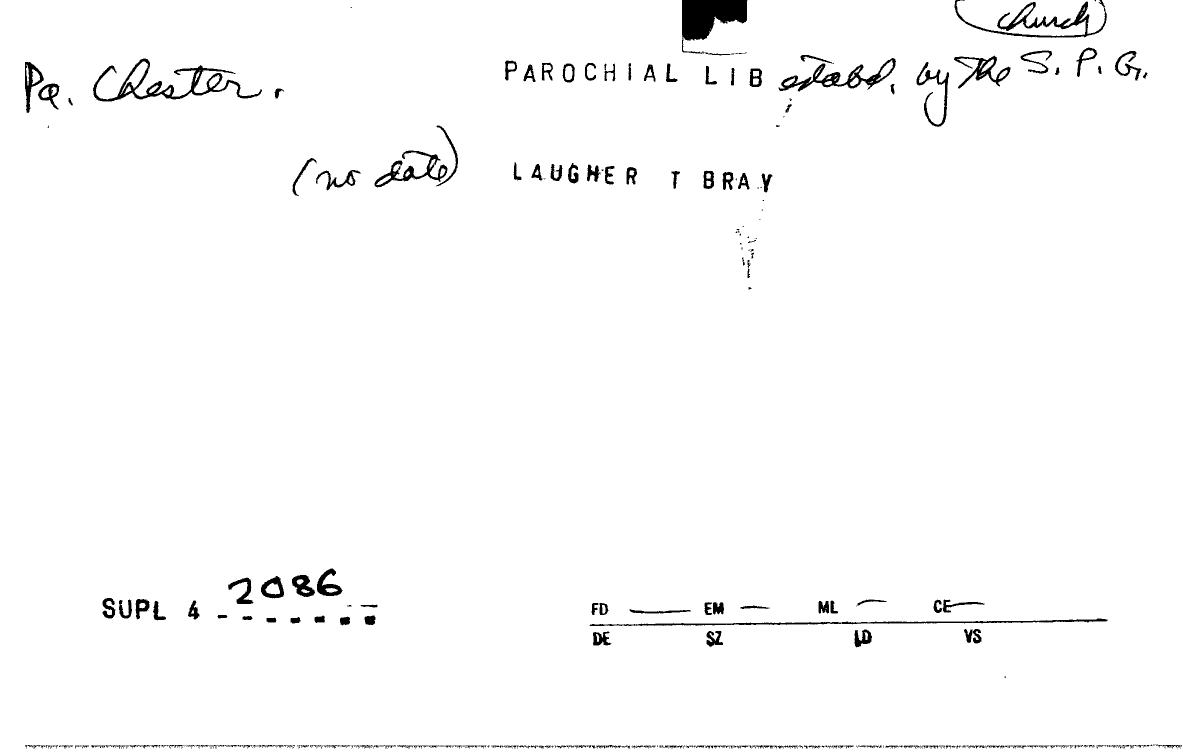 church
Pa. Chester. PAROCHIAL LIB establ. by the S. P. G.
(no date) LAUGHER T BRAY
SUPL 4 2086
FD EM ML CE
DE SZ LD VS